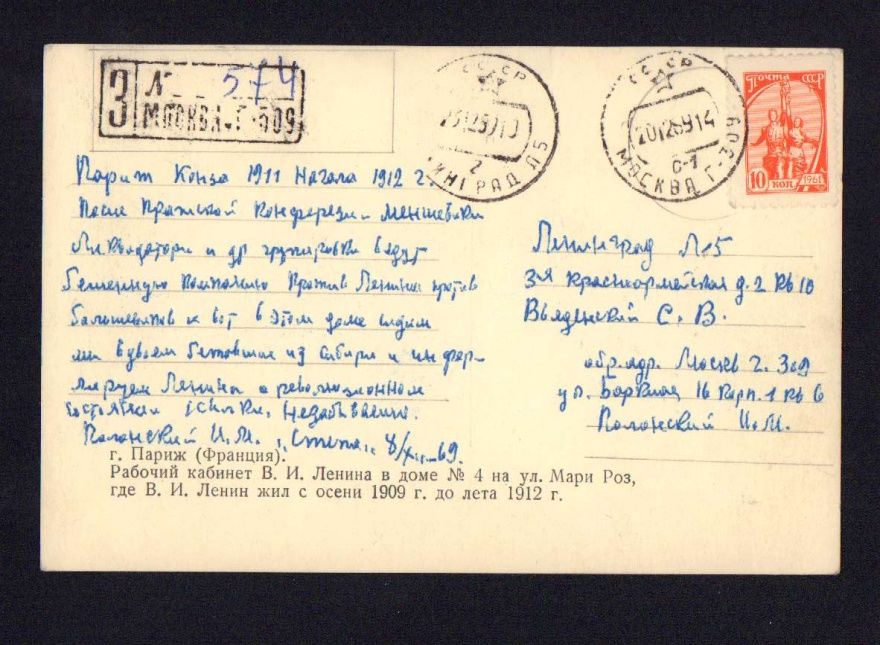 З № 574
МОСКВА Г-309
СССР
ЛЕНИНГРАД Л5
СССР
20126914
С-1
МОСКВА Г-309
ПОЧТА СССР
10 коп. 1961
Париж Конза 1911 Начала 1912 г.
После Пражской Конферезии меншевики
Ликвидатори и др групировки ведут
бешенную Компанию Против Ленина против
большевиков и вот в этом доме сидим
ми вдвоем бежавшие из Сибири и инфор-
мируем Ленина о революционном
состоянии ссилки. Незабиваемо.
Полонский И.М. „Степа„ 8/XII-69.
Ленинград Л-5
3-я Красноармейская д. 2 кв 10
Введенский С. В.
обр. адр. Москв Г. 309
ул. Барклая 16 корп. 1 кв 6
Полонский И.М.
г. Париж (Франция).
Рабочий кабинет В. И. Ленина в доме № 4 на ул. Мари Роз,
где В. И. Ленин жил с осени 1909 г. до лета 1912 г.